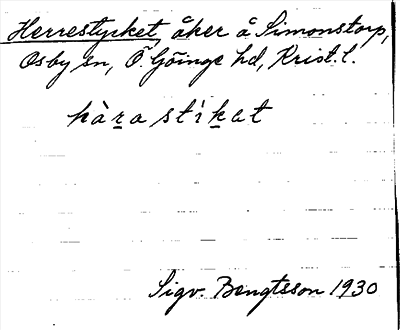 Herrestycket, åker å Simonstorp,
Osby sn, Ö. Göinge hd, Krist. l.
hàra stìkat
Sigv. Bengtsson 1930